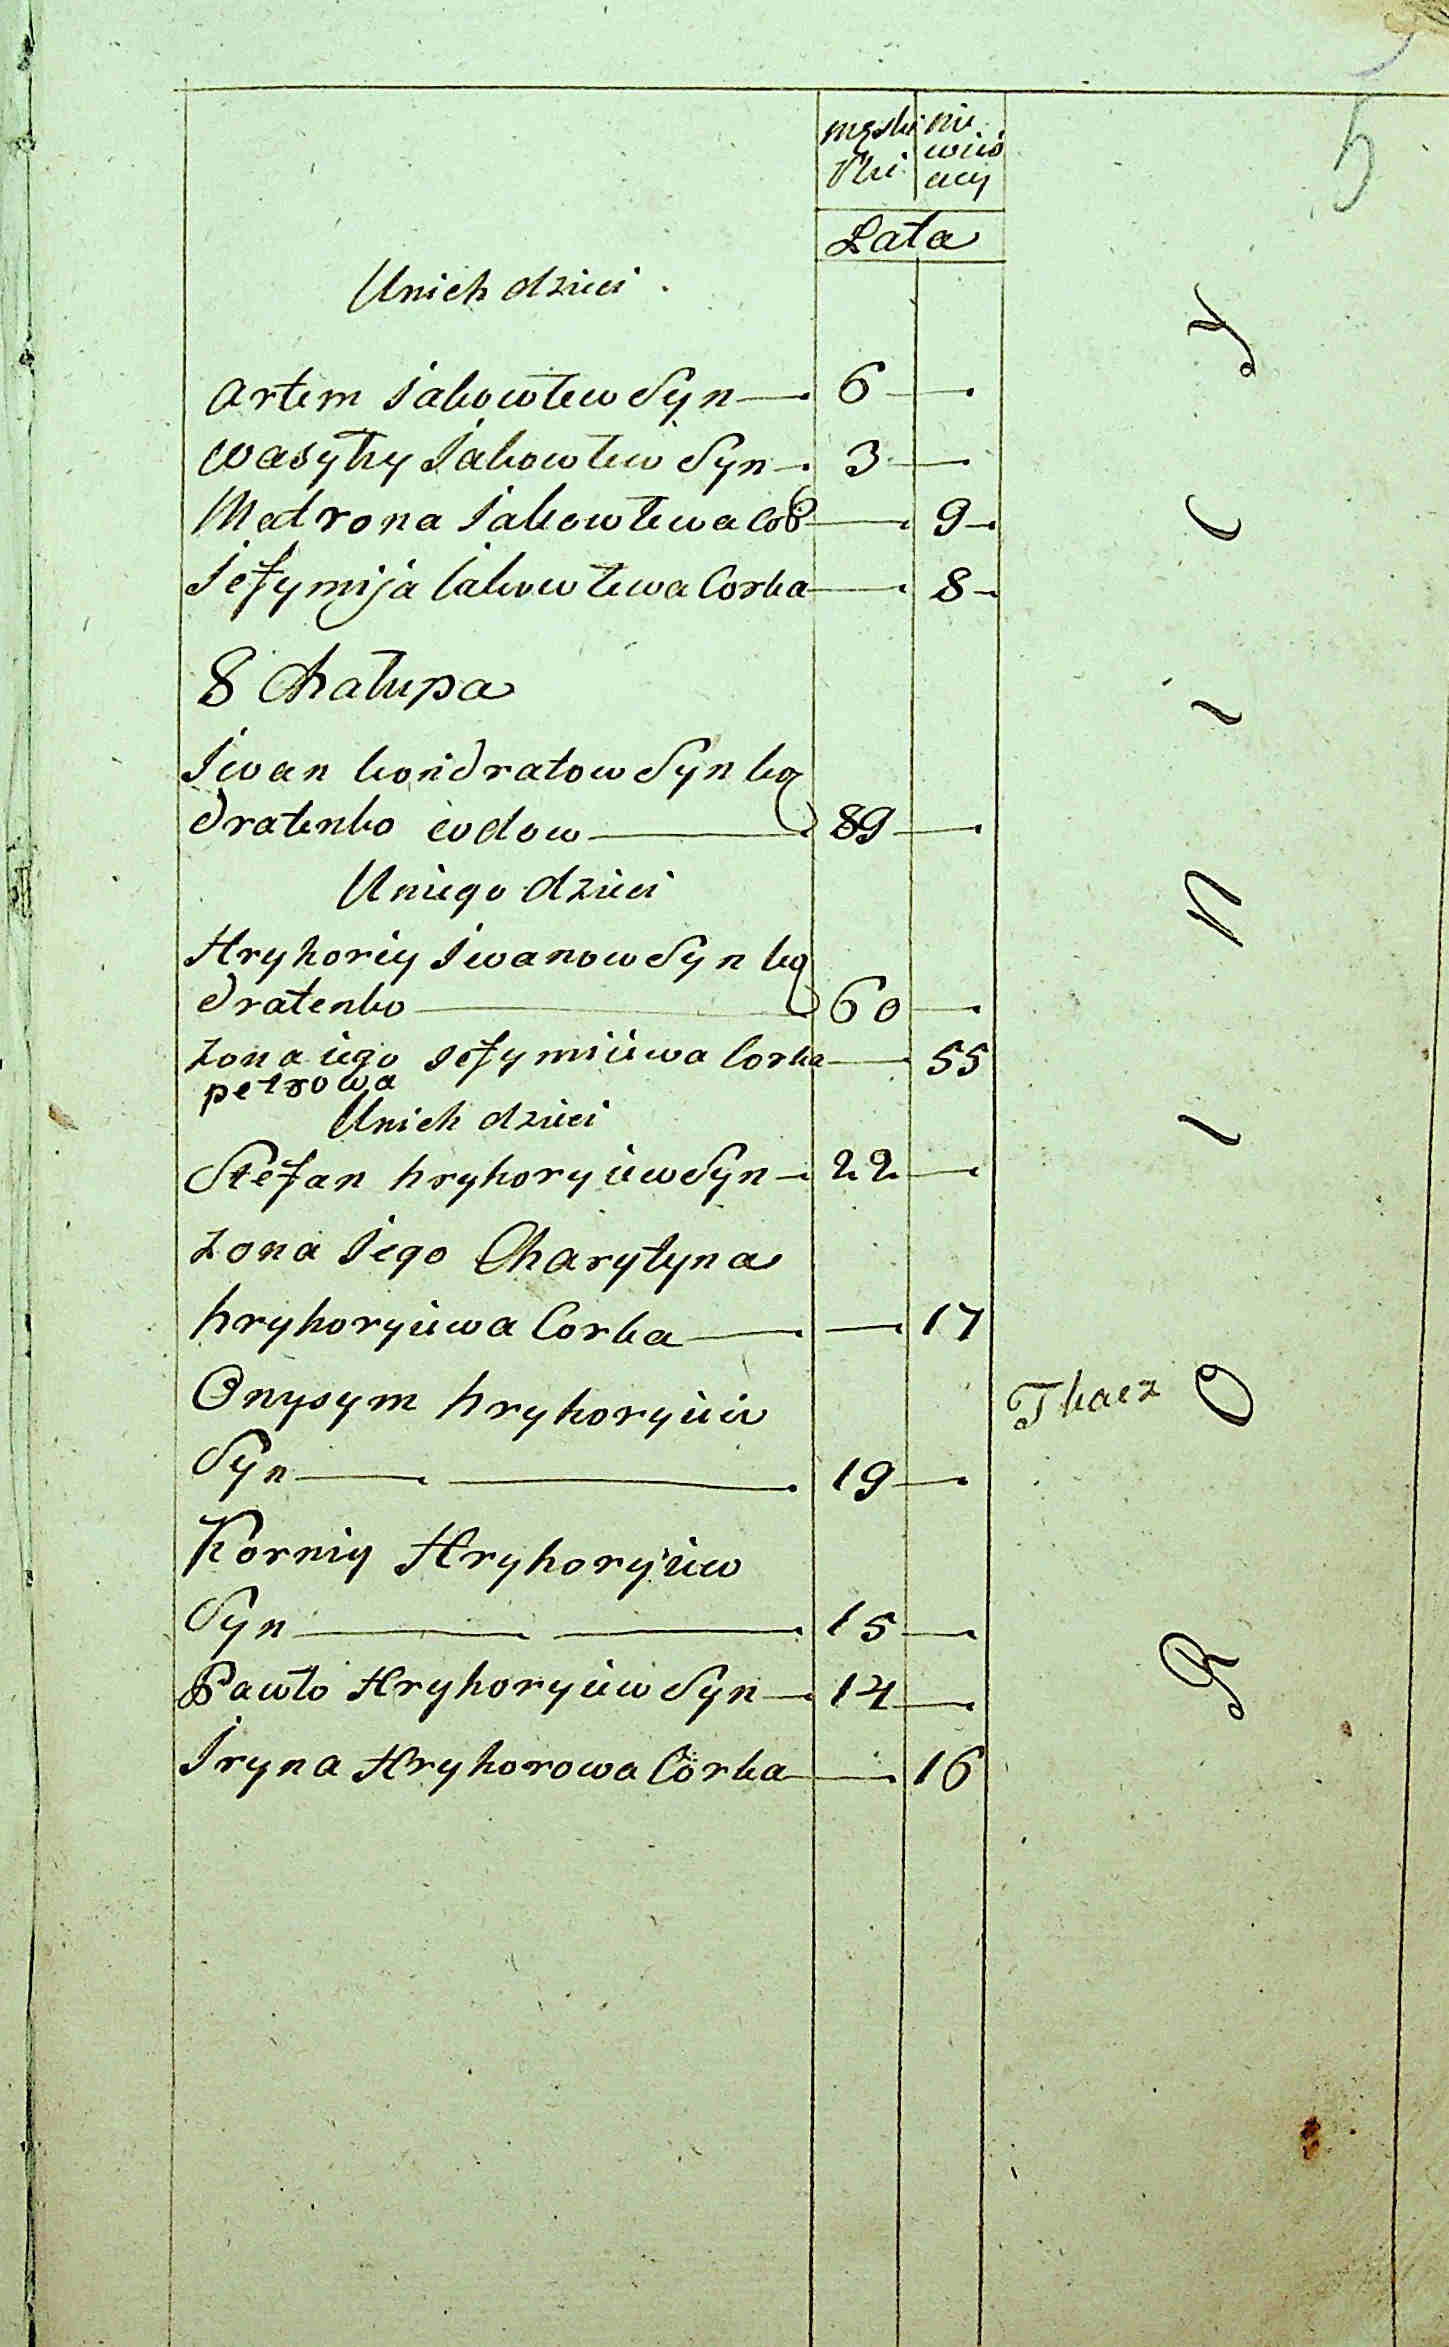 5
męski
Płci
nie
wieś
ciey
Lata
U nich dzieci.
Artem Jakowlew Syn — 6 —
Wasyly Jakowlew Syn — 3 —
Madrona Jakowlewa Cor — 9 —
Jefymija Jakowlewa Corka — 8 —
8 Chałupa
Jwan kondratow Syn ko
dratenko wdow — 89 —
U niego dzieci
Hryhoriy Jwanow Syn ko
dratenko — 60 —
żona iego Jefymiiewa Corka — 55
petrowa
U nich dzieci
Stefan hryhoryiew Syn — 22 —
żona Jego Charytyna
hryhoryiewa Corka — — 17
Onysym hryhoryiew
Syn — — 19 —
Tkacz
Korniy Hryhoryiew
Syn — — 15 —
Pawło Hryhoryiew Syn — 14 —
Jryna Hryhorowa Córka — 16
Rolnicy